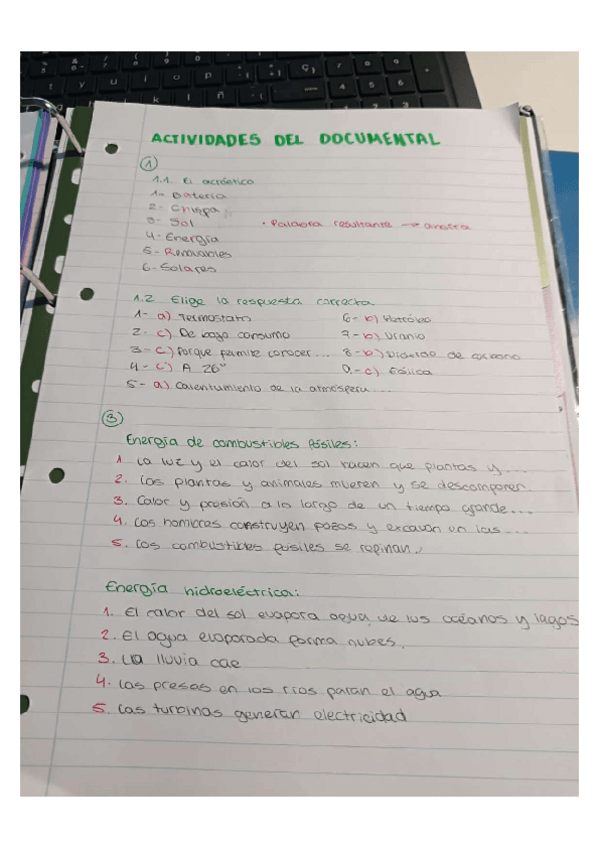 ACTIVIDADES DEL DOCUMENTAL
1
1.1. El acróstico
1- Batería
2- Chispa
3- Sol · Palabra resultante →
4- Energía
5- Renovables
6- Solares
1.2 Elige la respuesta correcta
1- a) Termostato 6- b) Petróleo
2- c) De bajo consumo 7- b) Uranio
3- c) Porque permite conocer... 8- b) Dióxido de carbono
4- c) A 26° 9- c) Eólica
5- a) Calentamiento de la atmósfera...
3
Energía de combustibles fósiles:
1. La luz y el calor del sol hacen que plantas y...
2. Las plantas y animales mueren y se descomponen.
3. Calor y presión a lo largo de un tiempo grande...
4. Los hombres construyen pozos y excavan en las...
5. Los combustibles fósiles se refinan.
Energía hidroeléctrica:
1. El calor del sol evapora agua de los océanos y lagos
2. El agua evaporada forma nubes.
3. La lluvia cae
4. Las presas en los ríos paran el agua
5. Las turbinas generan electricidad